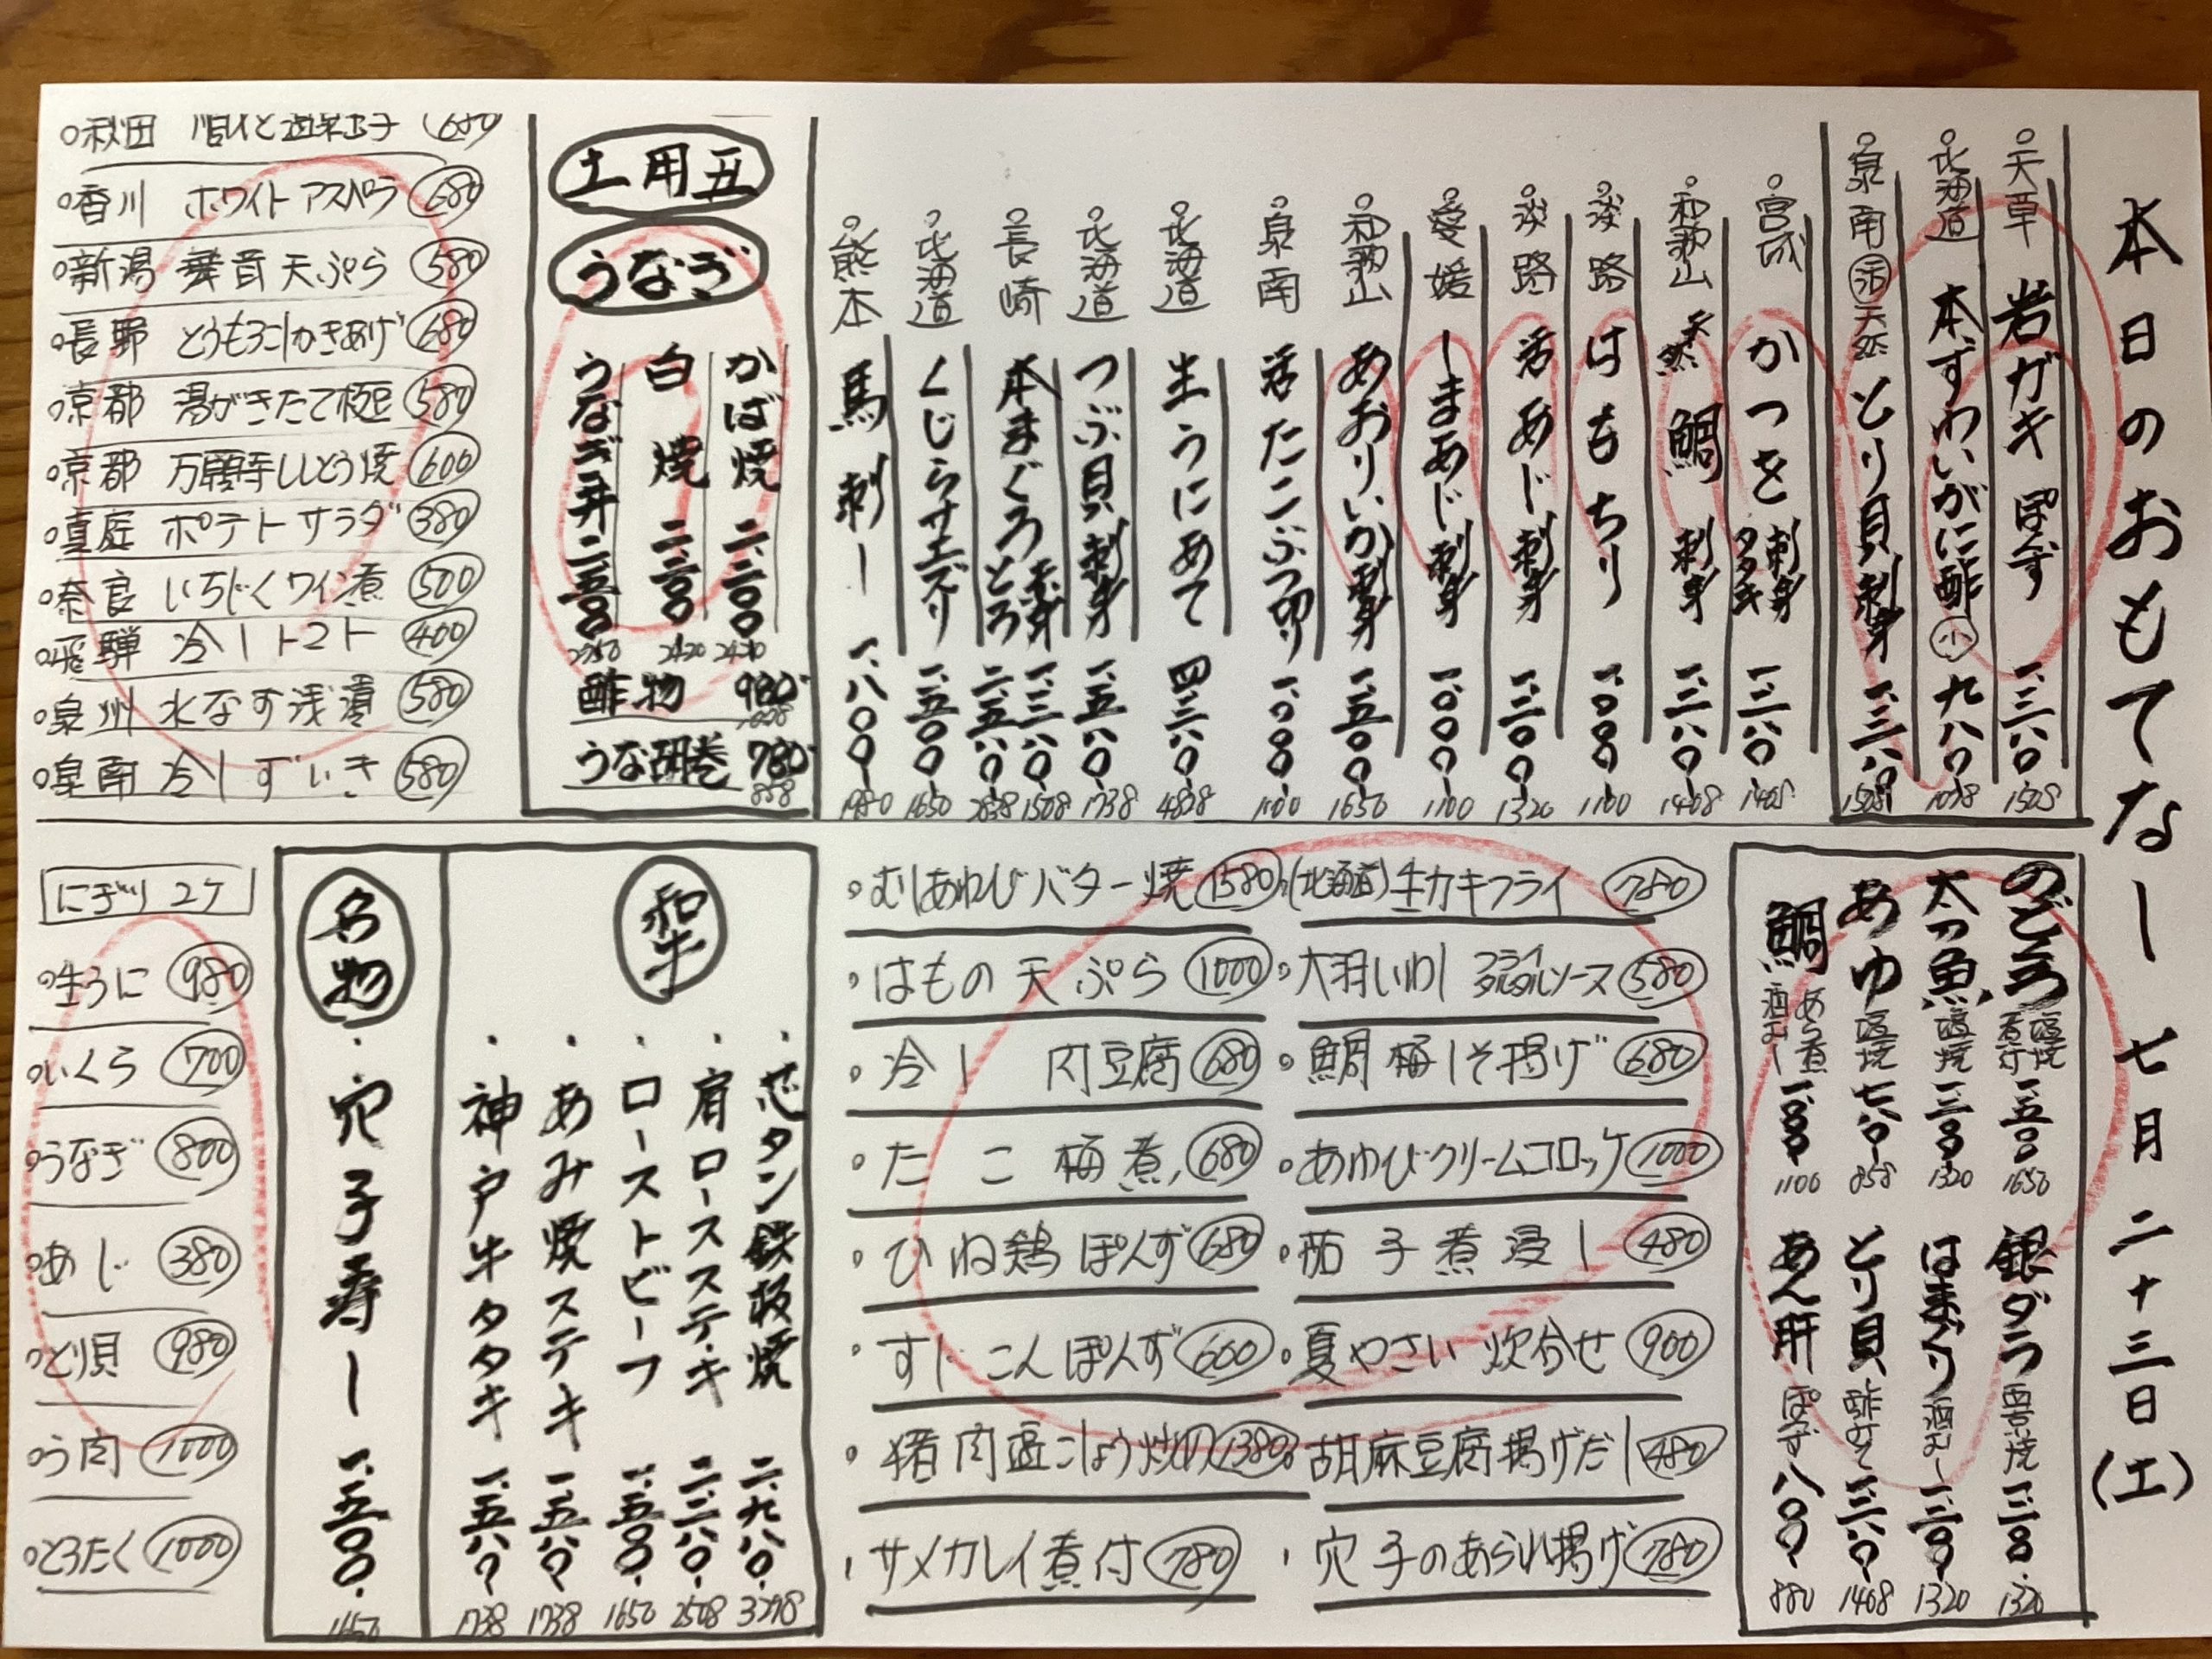 本日のおもてなし 七月二十三日(土)
天草 岩ガキ ぽんず 一、三八〇 1508
北海道 本ずわいがに酢 小 九八〇 1078
泉南 活 天然 とり貝刺身 一、三八〇 1508
宮城 かつを 刺身 タタキ 一、二八〇 1408
和歌山 天然 鯛 刺身 一、二八〇 1408
淡路 はもちり 一、〇〇〇 1100
淡路 活あじ刺身 一、二〇〇 1320
愛媛 しまあじ刺身 一、〇〇〇 1100
和歌山 あおりいか刺身 一、五〇〇 1650
泉南 活たこぶつ切り 一、〇〇〇 1100
北海道 生うにあて 四、三八〇
北海道 つぶ貝刺身 一、五八〇 1738
長崎 本まぐろ 赤身 一、三八〇 1508
とろ 二、五八〇 2838
北海道 くじらサエズリ 一、五〇〇 1650
熊本 馬刺し 一、八〇〇 1980
土用丑
うなぎ
かば焼 二、二〇〇 2420
白焼 二、二〇〇 2420
うなぎ丼 二、五〇〇 2750
酢物 980
うな胡巻 780 858
○秋田 680
○香川 ホワイトアスパラ 680
○新潟 舞茸天ぷら 580
○長野 とうもろこしかきあげ 680
○京都 湯がきたて枝豆 580
○京都 万願寺ししとう焼 600
○真庭 ポテトサラダ 380
○奈良 いちじくワイン煮 500
○飛騨 冷しトマト 400
○泉州 水なす浅漬 580
○泉南 冷しずいき 580
のどぐろ 塩焼 煮付 一、五〇〇 1650
太刀魚 塩焼 一、二〇〇 1320
あゆ 塩焼 七八〇 858
鯛 あら煮 酒むし 一、〇〇〇 1100
銀ダラ 西京焼 一、二〇〇 1320
はまぐり 酒むし 一、二〇〇 1320
とり貝 酢みそ 一、二八〇 1408
あん肝 ぽんず 八〇〇 880
・むしあわびバター焼 1580
・はもの天ぷら 1000
・冷し 肉豆腐 680
・たこ 梅煮 680
・ひね鶏ぽんず 680
・すじこんぽんず 600
・猪肉塩こしょう炒め 1380
・サメカレイ煮付 780
(北海道)生カキフライ 780
・大羽いわし フライ タルタルソース 580
・鯛梅しそ揚げ 680
・あわびクリームコロッケ 1000
・茄子煮浸し 480
・夏やさい炊合せ 900
胡麻豆腐揚げだし 480
・穴子のあられ揚げ 780
和牛
・芯タン鉄板焼 二、九八〇 3278
・肩ロースステーキ 二、二八〇 2508
・ローストビーフ 一、五〇〇 1650
・あみ焼ステーキ 一、五八〇 1738
・神戸牛タタキ 一、五八〇 1738
名物
・穴子寿し 一、五〇〇 1650
にぎり 2ケ
○生うに 980
○いくら 700
○うなぎ 800
○あじ 380
○とり貝 980
○う肉 1000
○とろたく 1000